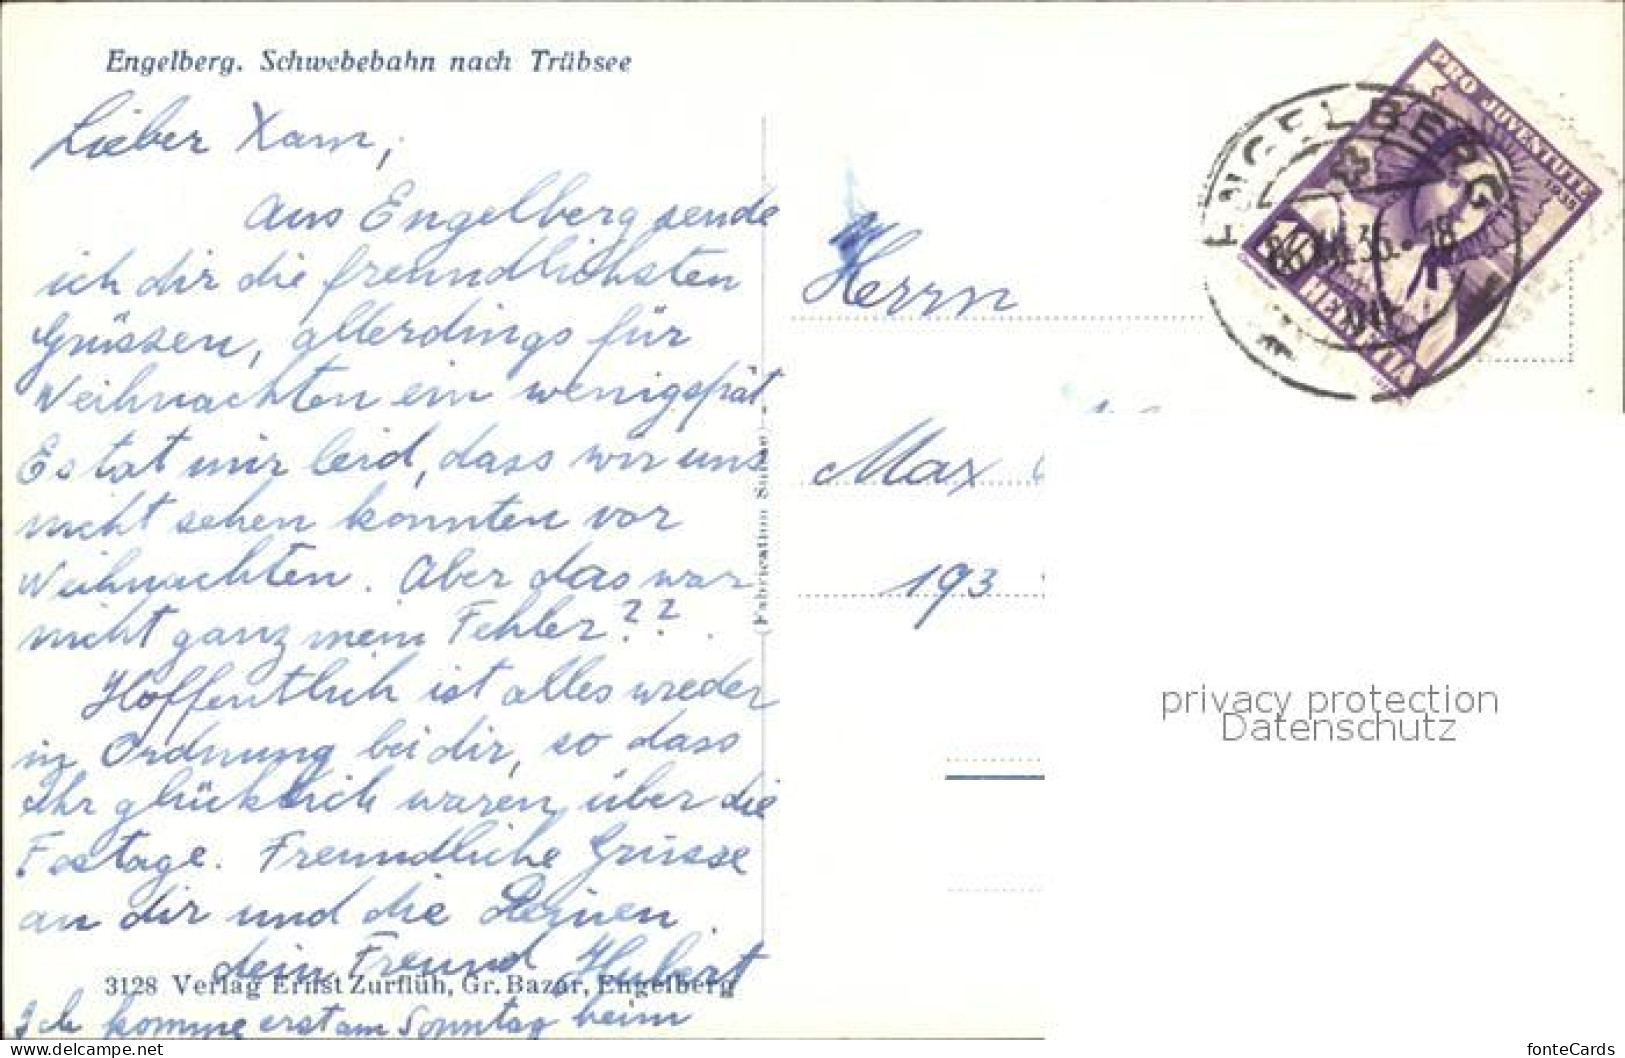 Engelberg. Schwebebahn nach Trübsee
Lieber Xam,
Aus Engelberg sende
ich dir die freundlichsten
Grüssen, allerdings für
Weihnachten ein wenig spät
Es tat mir leid, dass wir uns
nicht sehen konnten vor
Weihnachten. Aber das war
nicht ganz mein Fehler??
Hoffentlich ist alles wieder
in Ordnung bei dir, so dass
Ihr glücklich waren über die
Festage. Freundliche Grüsse
an dir und die Deinen.
dein Freund Hubert
3128 Verlag Ernst Zurflüh, Gr. Bazar, Engelberg
Ich komme erst am Sonntag heim
(Fabrication Suisse)
PRO JUVENTUTE
1935
10
HELVETIA
ENGELBERG
35.-18
Herrn
Max
193
privacy protection
Datenschutz
https://www.delcampe.net
fonteCards